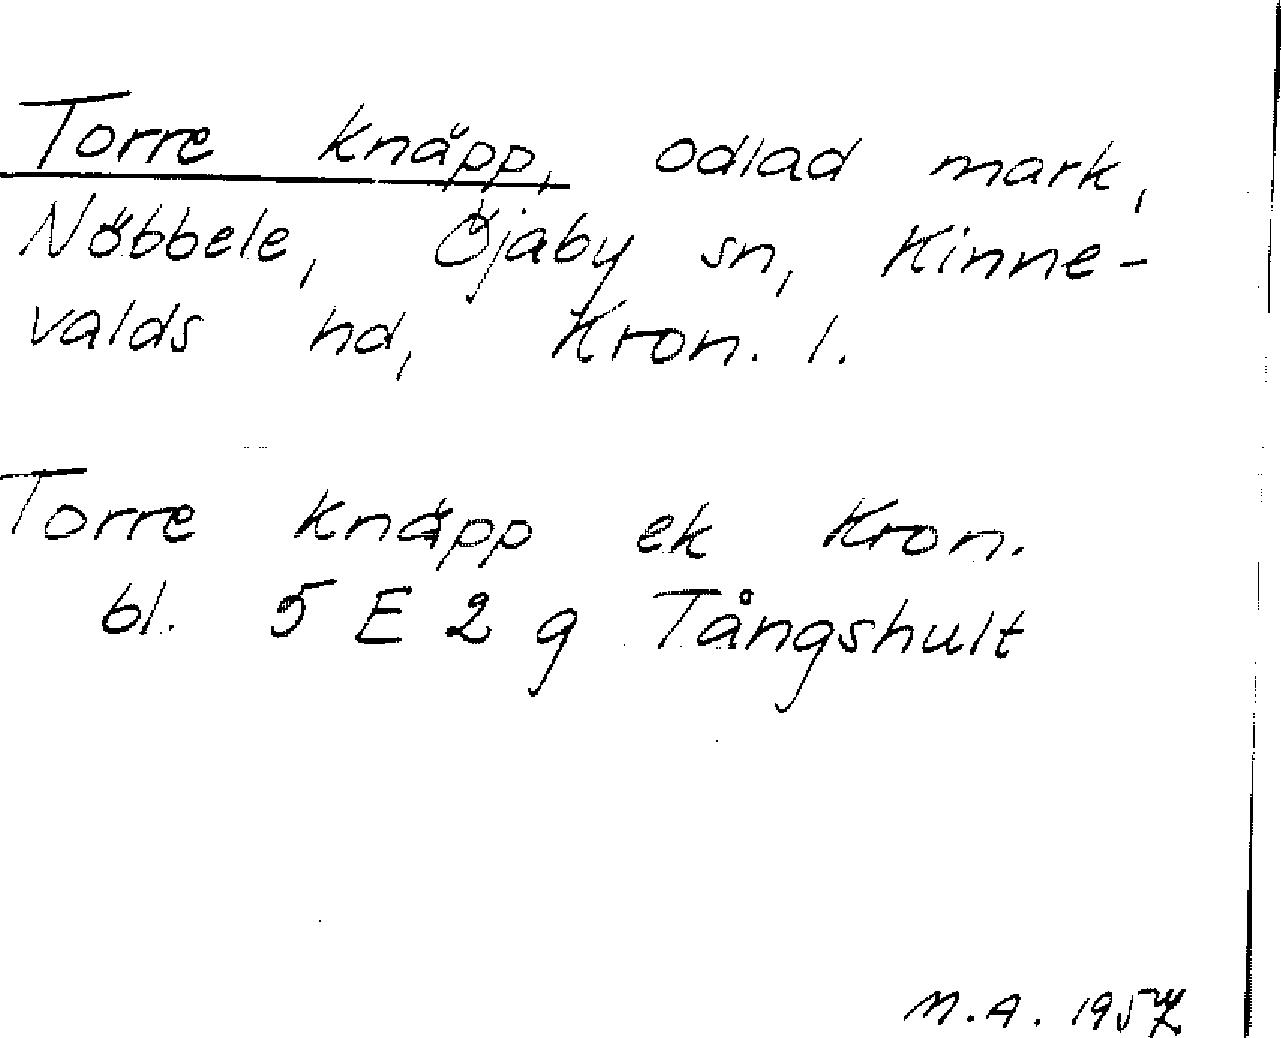 Torre knäpp, odlad mark,
Nöbbele, Öjaby sn, Kinne-
valds hd, Kron. l.
Torre knäpp ek Kron.
bl. 5 E 2 g Tångshult
M.A. 1957